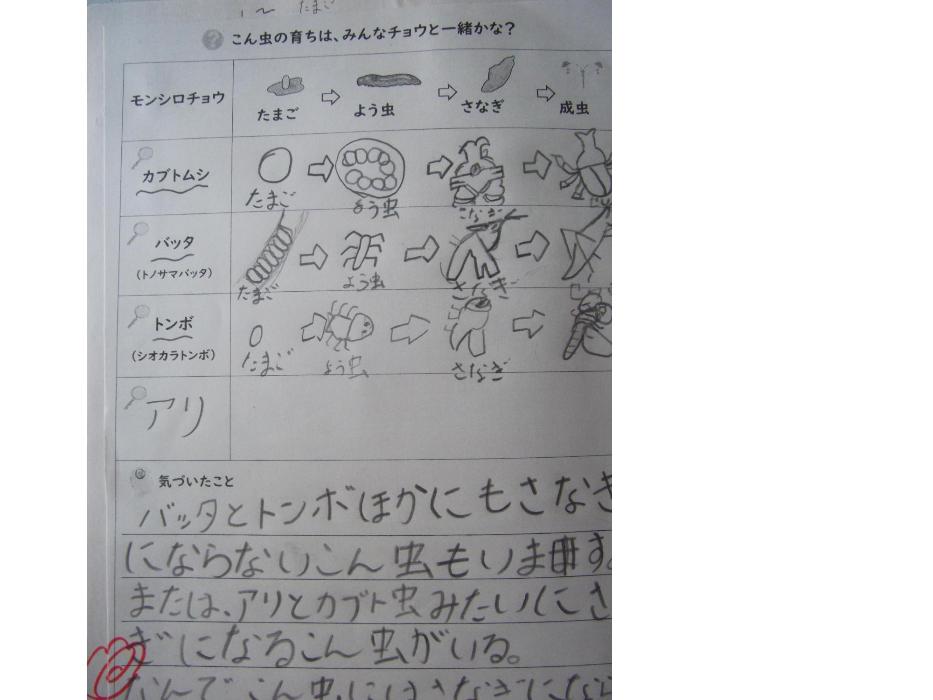 たまご
こん虫の育ちは、みんなチョウと一緒かな？
モンシロチョウ
たまご よう虫 さなぎ 成虫
カブトムシ
たまご よう虫 さなぎ
バッタ
(トノサマバッタ)
たまご よう虫 さなぎ
トンボ
(シオカラトンボ)
たまご よう虫 さなぎ
アリ
気づいたこと
バッタとトンボほかにもさなぎ
にならないこん虫もいます。
または、アリとカブト虫みたいにさ
ぎになるこん虫がいる。
なんでこん虫にはさなぎになら